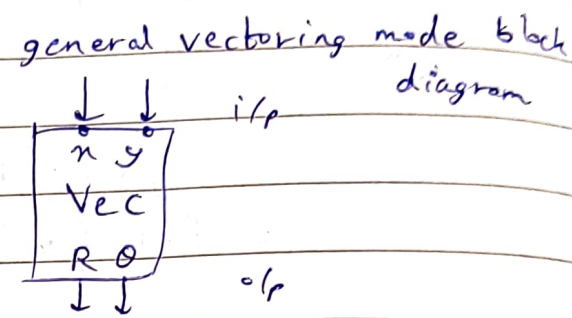 general vectoring mode block
diagram
i/p
x y
Vec
R θ
o/p